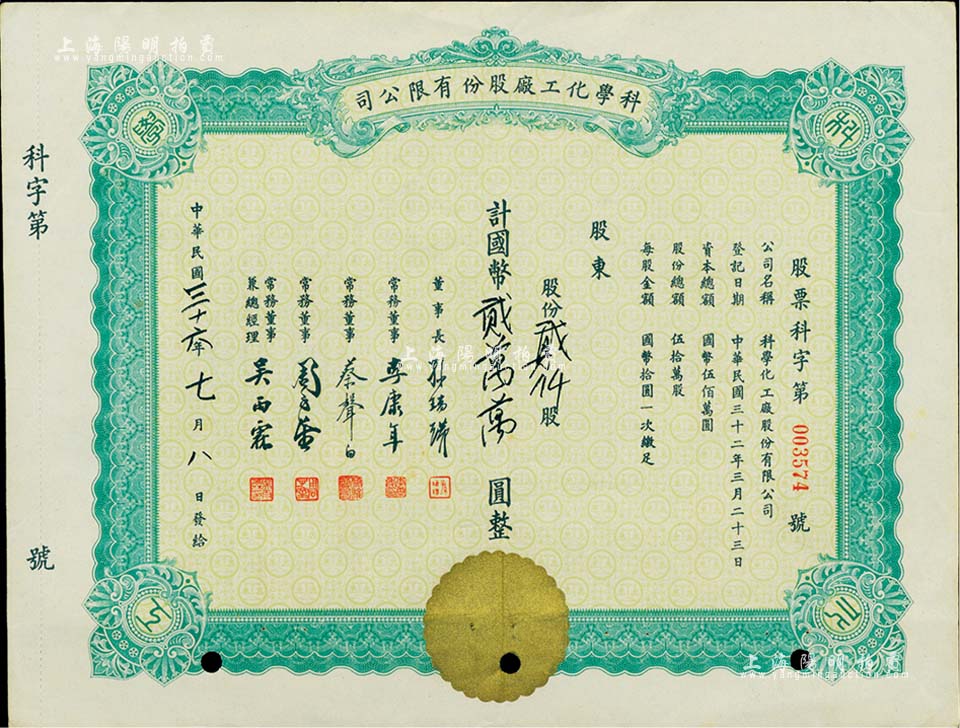 上海陽明拍賣
www.yangmingauction.com
科學化工廠股份有限公司
科
學
化
工
股票科字第 003574 號
公司名稱 科學化工廠股份有限公司
登記日期 中華民國三十二年三月二十三日
資本總額 國幣伍佰萬圓
股份總額 伍拾萬股
每股金額 國幣拾圓一次繳足
股東
股份貳仟股
計國幣貳萬萬圓整
董事長
常務董事 李康年
常務董事 蔡聲白
常務董事
常務董事
兼總經理 吳雨霖
中華民國三十六年七月八日發給
科字第 號
上海陽明拍賣
www.yangmingauction.com
上海陽明拍賣
www.yangmingauction.com